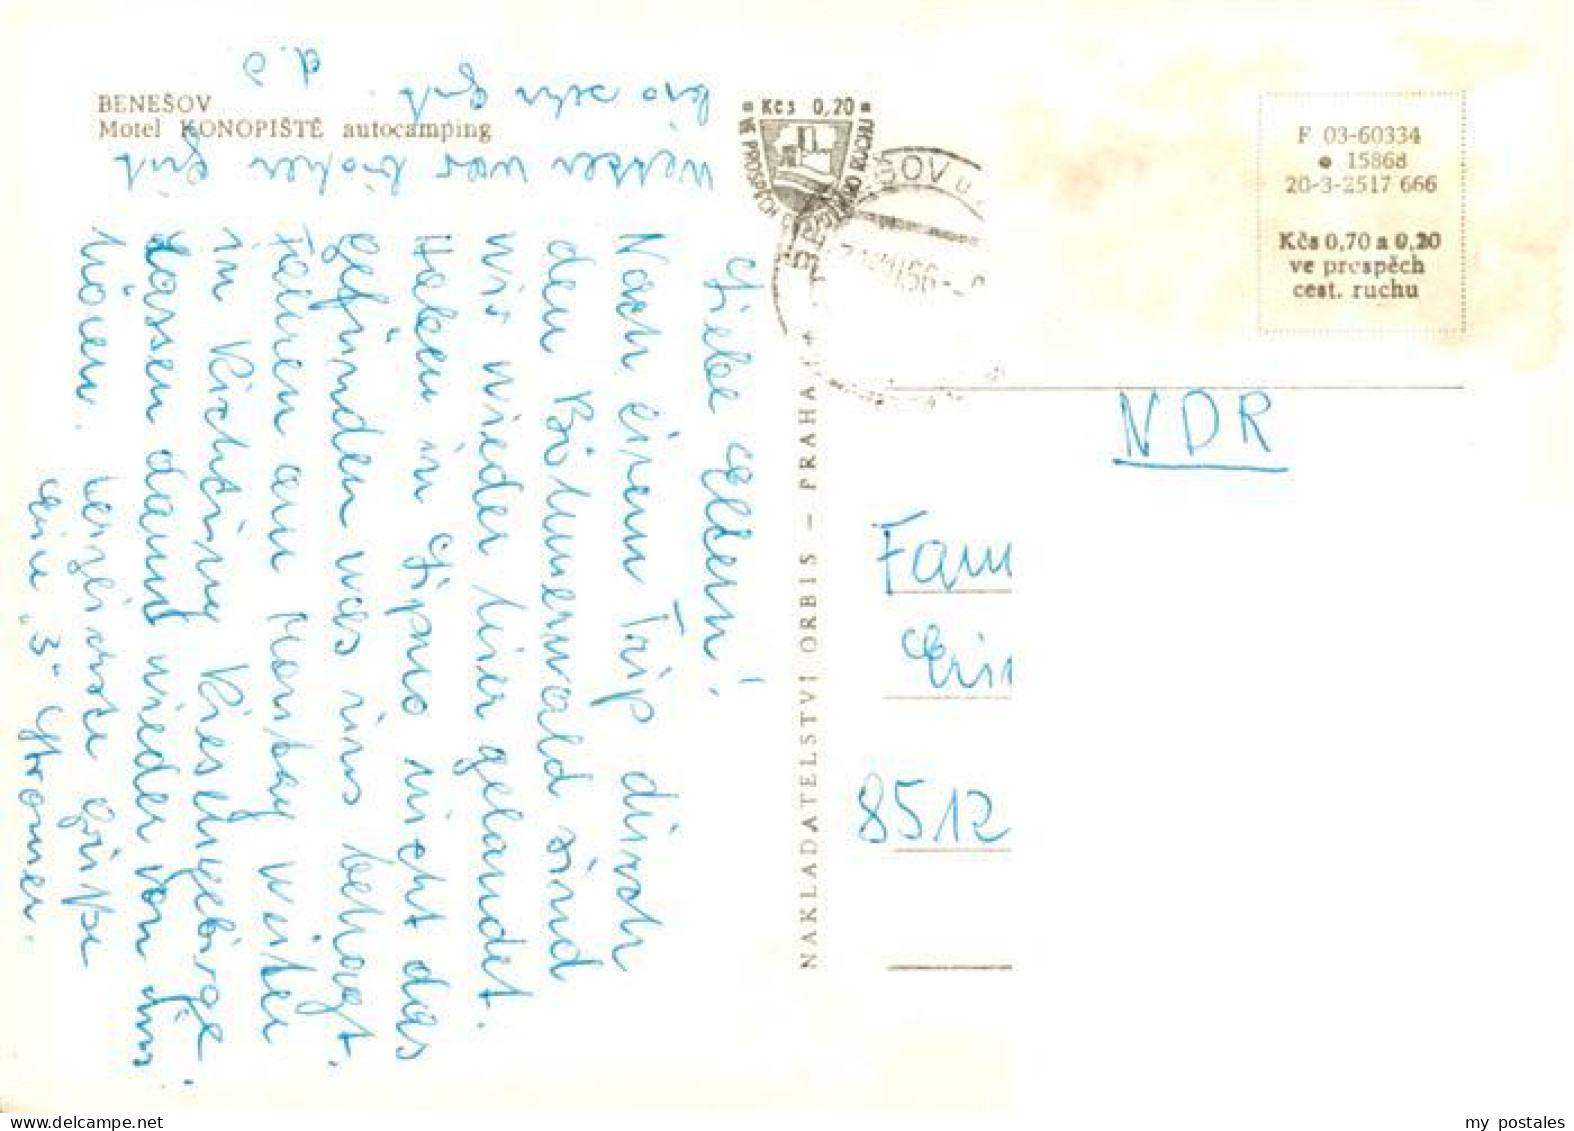 BENEŠOV
Motel KONOPIŠTĚ autocamping
Liebe Eltern!
Nach einem Trip durch
den Böhmerwald sind
wir wieder hier gelandet.
Haben in Lipno nicht das
gefunden was uns behagt.
Fahren am Montag weiter
in Richtung Riesengebirge
Lassen dann wieder von uns
hören.
herzlichste Grüße
Eure "3"
Wetter war bisher gut
bis sehr gut.
d. O
Kčs 0,20
VE PROSPĚCH CESTOVNÍHO RUCHU
NAKLADATELSTVÍ ORBIS — PRAHA
F 03-60334
15868
20-3-2517 666
Kčs 0,70 a 0,20
ve prospěch
cest. ruchu
NDR
Fam
8512
my postales